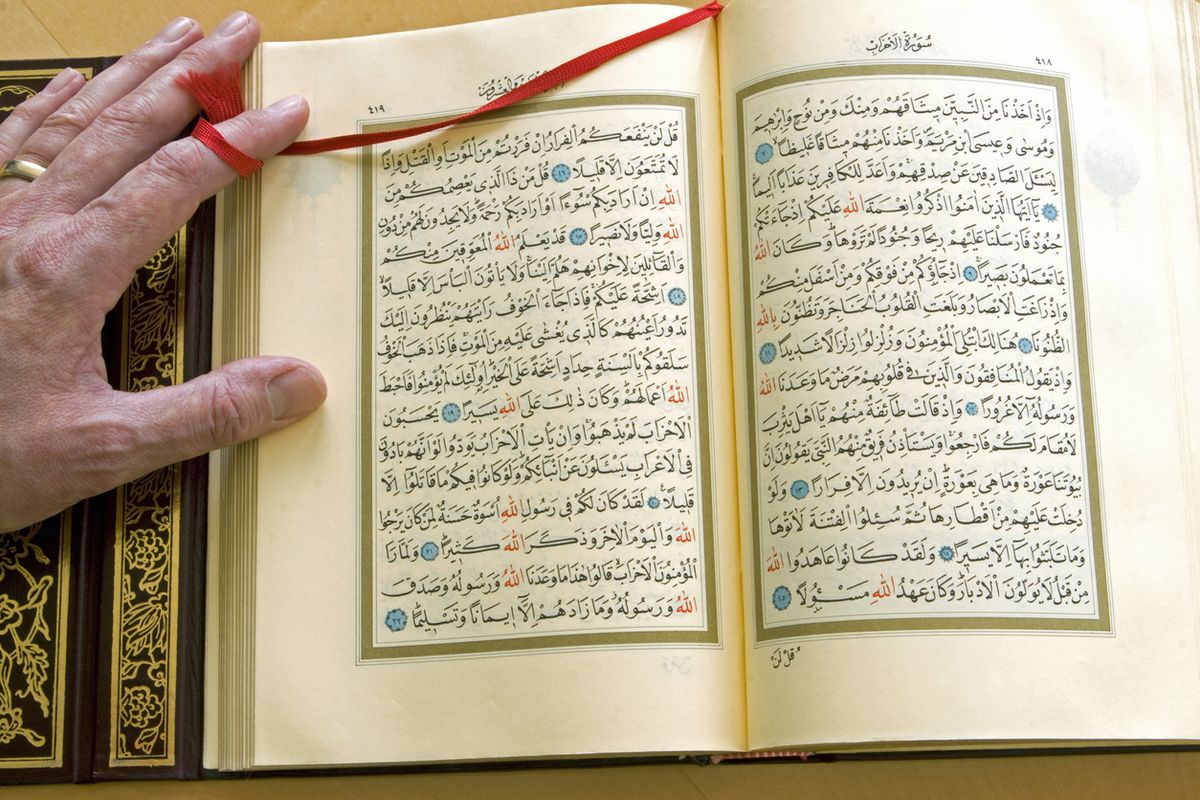 سُورَةُ الْاَحْزَابِ
٤١٨
وَاِذْ اَخَذْنَا مِنَ النَّبِيّٖنَ مِيثَاقَهُمْ وَمِنْكَ وَمِنْ نُوحٍ وَاِبْرٰهِيمَ
وَمُوسٰى وَعِيسَى ابْنِ مَرْيَمَ وَاَخَذْنَا مِنْهُمْ مِيثَاقًا غَلِيظًا ٧
لِيَسْـَٔلَ الصَّادِقِينَ عَنْ صِدْقِهِمْ وَاَعَدَّ لِلْكَافِرِينَ عَذَابًا اَلِيمًا
٨ يَٓا اَيُّهَا الَّذِينَ اٰمَنُوا اذْكُرُوا نِعْمَةَ اللّٰهِ عَلَيْكُمْ اِذْ جَٓاءَتْكُمْ
جُنُودٌ فَاَرْسَلْنَا عَلَيْهِمْ رِيحًا وَجُنُودًا لَمْ تَرَوْهَا وَكَانَ اللّٰهُ
بِمَا تَعْمَلُونَ بَصِيرًا ٩ اِذْ جَٓاؤُكُمْ مِنْ فَوْقِكُمْ وَمِنْ اَسْفَلَ مِنْكُمْ
وَاِذْ زَاغَتِ الْاَبْصَارُ وَبَلَغَتِ الْقُلُوبُ الْحَنَاجِرَ وَتَظُنُّونَ بِاللّٰهِ
الظُّنُونَا ١٠ هُنَالِكَ ابْتُلِيَ الْمُؤْمِنُونَ وَزُلْزِلُوا زِلْزَالًا شَدِيدًا ١١
وَاِذْ يَقُولُ الْمُنَافِقُونَ وَالَّذِينَ فِي قُلُوبِهِمْ مَرَضٌ مَا وَعَدَنَا اللّٰهُ
وَرَسُولُهُٓ اِلَّا غُرُورًا ١٢ وَاِذْ قَالَتْ طَٓائِفَةٌ مِنْهُمْ يَٓا اَهْلَ يَثْرِبَ
لَا مُقَامَ لَكُمْ فَارْجِعُوا وَيَسْتَأْذِنُ فَرِيقٌ مِنْهُمُ النَّبِيَّ يَقُولُونَ اِنَّ
بُيُوتَنَا عَوْرَةٌ وَمَا هِيَ بِعَوْرَةٍ اِنْ يُرِيدُونَ اِلَّا فِرَارًا ١٣ وَلَوْ
دُخِلَتْ عَلَيْهِمْ مِنْ اَقْطَارِهَا ثُمَّ سُئِلُوا الْفِتْنَةَ لَاٰتَوْهَا
وَمَا تَلَبَّثُوا بِهَٓا اِلَّا يَسِيرًا ١٤ وَلَقَدْ كَانُوا عَاهَدُوا اللّٰهَ
مِنْ قَبْلُ لَا يُوَلُّونَ الْاَدْبَارَ وَكَانَ عَهْدُ اللّٰهِ مَسْؤُلًا ١٥
قُلْ لَنْ
وَالْعِشْرُونَ
٤١٩
قُلْ لَنْ يَنْفَعَكُمُ الْفِرَارُ اِنْ فَرَرْتُمْ مِنَ الْمَوْتِ اَوِ الْقَتْلِ وَاِذًا
لَا تُمَتَّعُونَ اِلَّا قَلِيلًا ١٦ قُلْ مَنْ ذَا الَّذِي يَعْصِمُكُمْ مِنَ
اللّٰهِ اِنْ اَرَادَ بِكُمْ سُٓوءًا اَوْ اَرَادَ بِكُمْ رَحْمَةً وَلَا يَجِدُونَ لَهُمْ مِنْ دُونِ
اللّٰهِ وَلِيًّا وَلَا نَصِيرًا ١٧ قَدْ يَعْلَمُ اللّٰهُ الْمُعَوِّقِينَ مِنْكُمْ
وَالْقَٓائِلِينَ لِاِخْوَانِهِمْ هَلُمَّ اِلَيْنَا وَلَا يَأْتُونَ الْبَأْسَ اِلَّا قَلِيلًا
١٨ اَشِحَّةً عَلَيْكُمْ فَاِذَا جَٓاءَ الْخَوْفُ رَاَيْتَهُمْ يَنْظُرُونَ اِلَيْكَ
تَدُورُ اَعْيُنُهُمْ كَالَّذِي يُغْشٰى عَلَيْهِ مِنَ الْمَوْتِ فَاِذَا ذَهَبَ الْخَوْفُ
سَلَقُوكُمْ بِاَلْسِنَةٍ حِدَادٍ اَشِحَّةً عَلَى الْخَيْرِ اُو۬لٰٓئِكَ لَمْ يُؤْمِنُوا فَاَحْبَطَ
اللّٰهُ اَعْمَالَهُمْ وَكَانَ ذٰلِكَ عَلَى اللّٰهِ يَسِيرًا ١٩ يَحْسَبُونَ
الْاَحْزَابَ لَمْ يَذْهَبُوا وَاِنْ يَأْتِ الْاَحْزَابُ يَوَدُّوا لَوْ اَنَّهُمْ بَادُونَ
فِي الْاَعْرَابِ يَسْـَٔلُونَ عَنْ اَنْبَٓائِكُمْ وَلَوْ كَانُوا فِيكُمْ مَا قَاتَلُٓوا اِلَّا
قَلِيلًا ٢٠ لَقَدْ كَانَ لَكُمْ فِي رَسُولِ اللّٰهِ اُسْوَةٌ حَسَنَةٌ لِمَنْ كَانَ يَرْجُوا
اللّٰهَ وَالْيَوْمَ الْاٰخِرَ وَذَكَرَ اللّٰهَ كَثِيرًا ٢١ وَلَمَّا رَاَ
الْمُؤْمِنُونَ الْاَحْزَابَ قَالُوا هٰذَا مَا وَعَدَنَا اللّٰهُ وَرَسُولُهُ وَصَدَقَ
اللّٰهُ وَرَسُولُهُ وَمَا زَادَهُمْ اِلَّٓا اِيمَانًا وَتَسْلِيمًا ٢٢